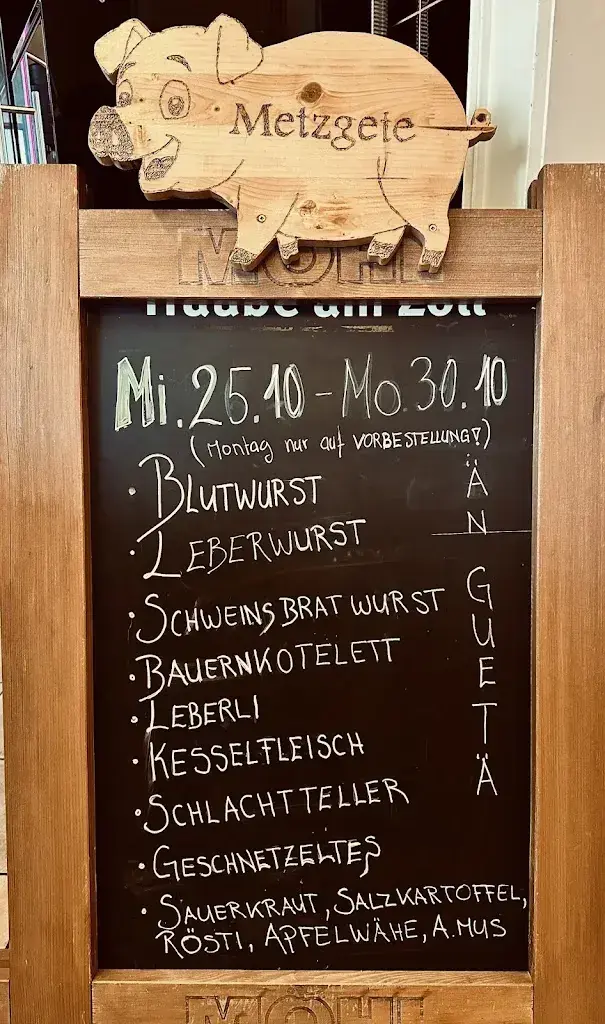 Metzgete
MÖHL
Traube am Zoll
Mi. 25.10 - Mo. 30.10
(Montag nur auf VORBESTELLUNG!)
• BLUTWURST
• LEBERWURST
• SCHWEINSBRATWURST
• BAUERNKOTELETT
• LEBERLI
• KESSELFLEISCH
• SCHLACHTTELLER
• GESCHNETZELTES
• SAUERKRAUT, SALZKARTOFFEL,
RÖSTI, APFELWÄHE, A.MUS
ÄN
GUETÄ
MÖHL